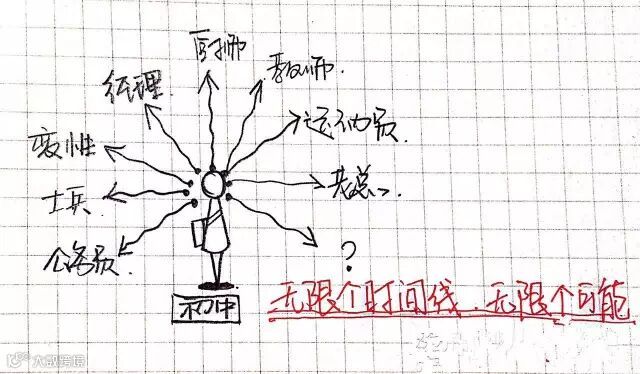 医师
教师.
经理.
运动员
变性
士兵
公务员.
?
初中
无限个时间线.无限个可能
大数跨境